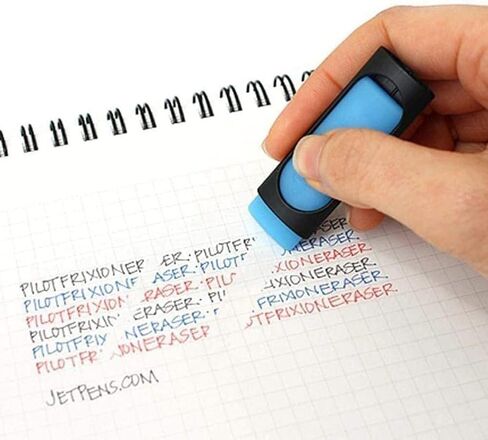 PILOTFRIXIONER ER·PILOTFR ERASER·
PILOTFRIXIONE ASER·PILOTF NERASER·
PILOTFRIXION ERASER·PIL XIONERASER·
PILOTFRIXI ERASER·PI IXIONERASER·
PILOTFRIX NERASER· FRIXIONERASER·
PILOTFR IONERASER OTFRIXIONERASER·
JETPENS.COM